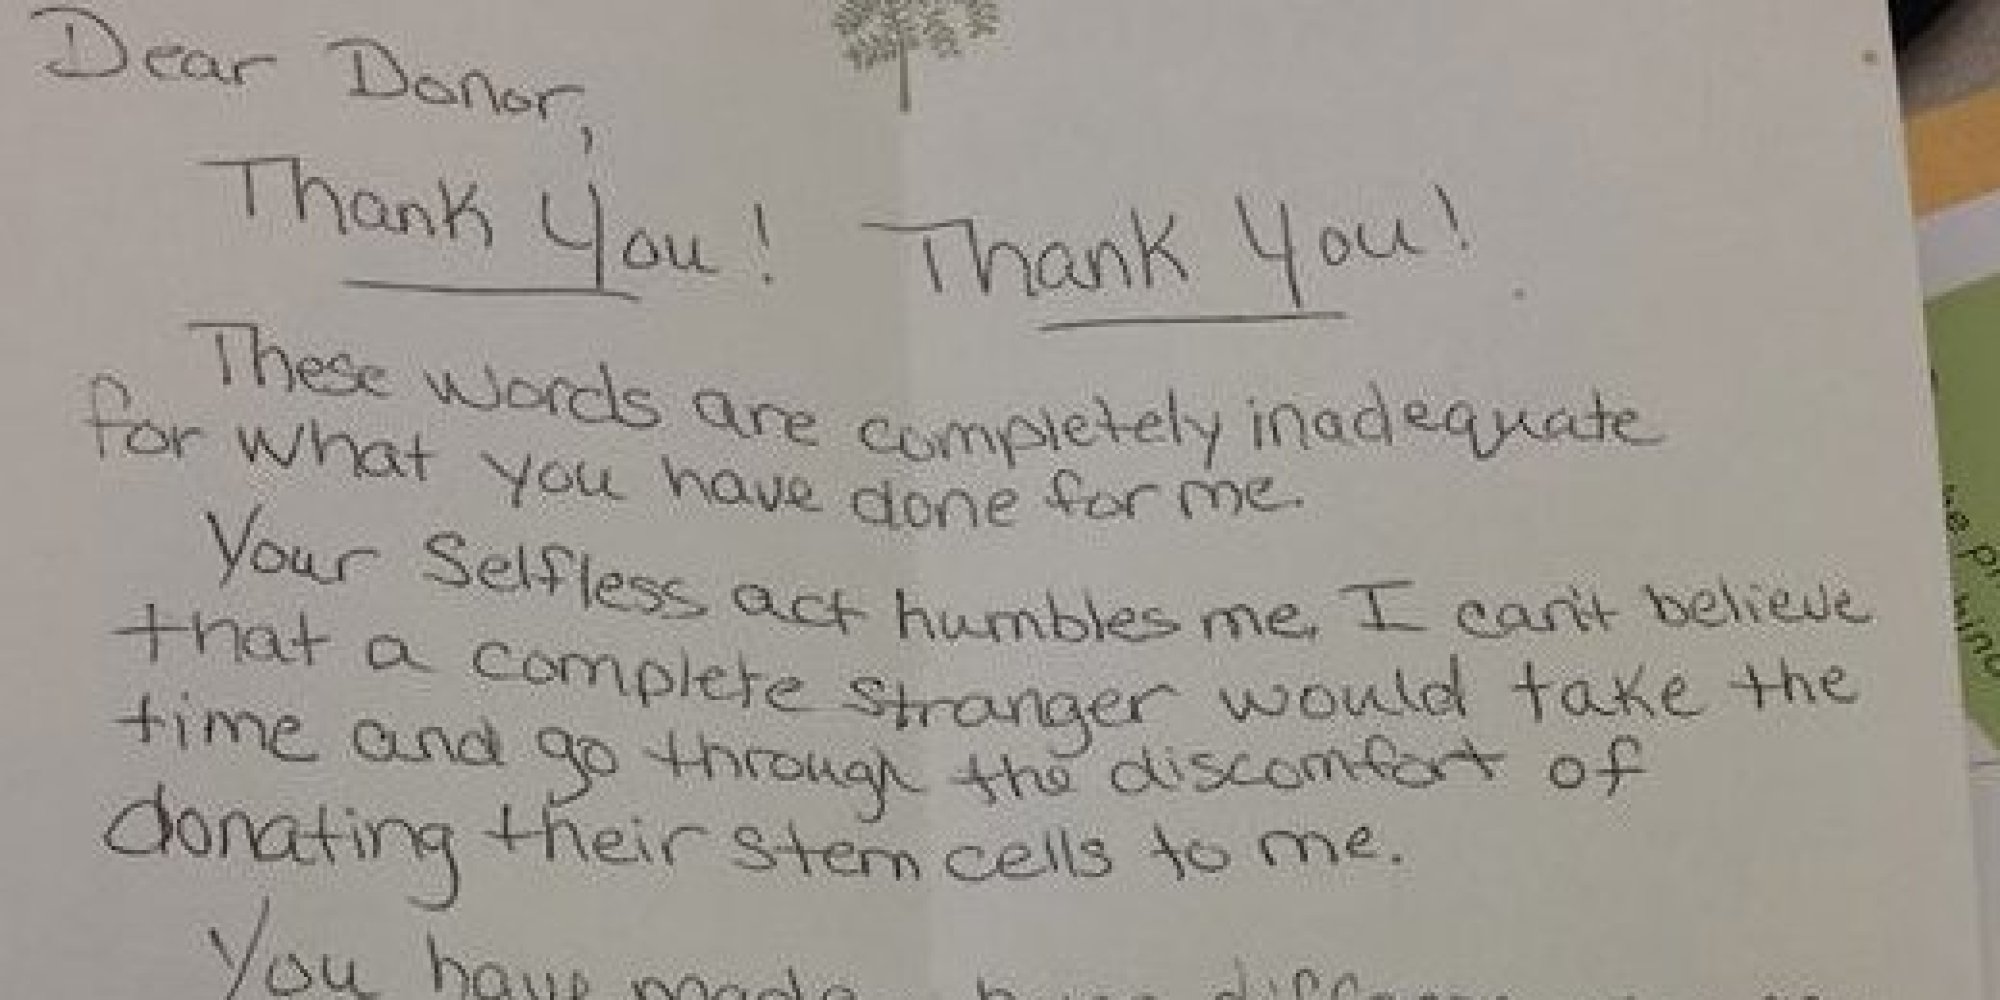 Dear Donor,
Thank You! Thank You!
These words are completely inadequate
for what you have done for me.
Your Selfless act humbles me. I can't believe
that a complete stranger would take the
time and go through the discomfort of
donating their stem cells to me.
You have made